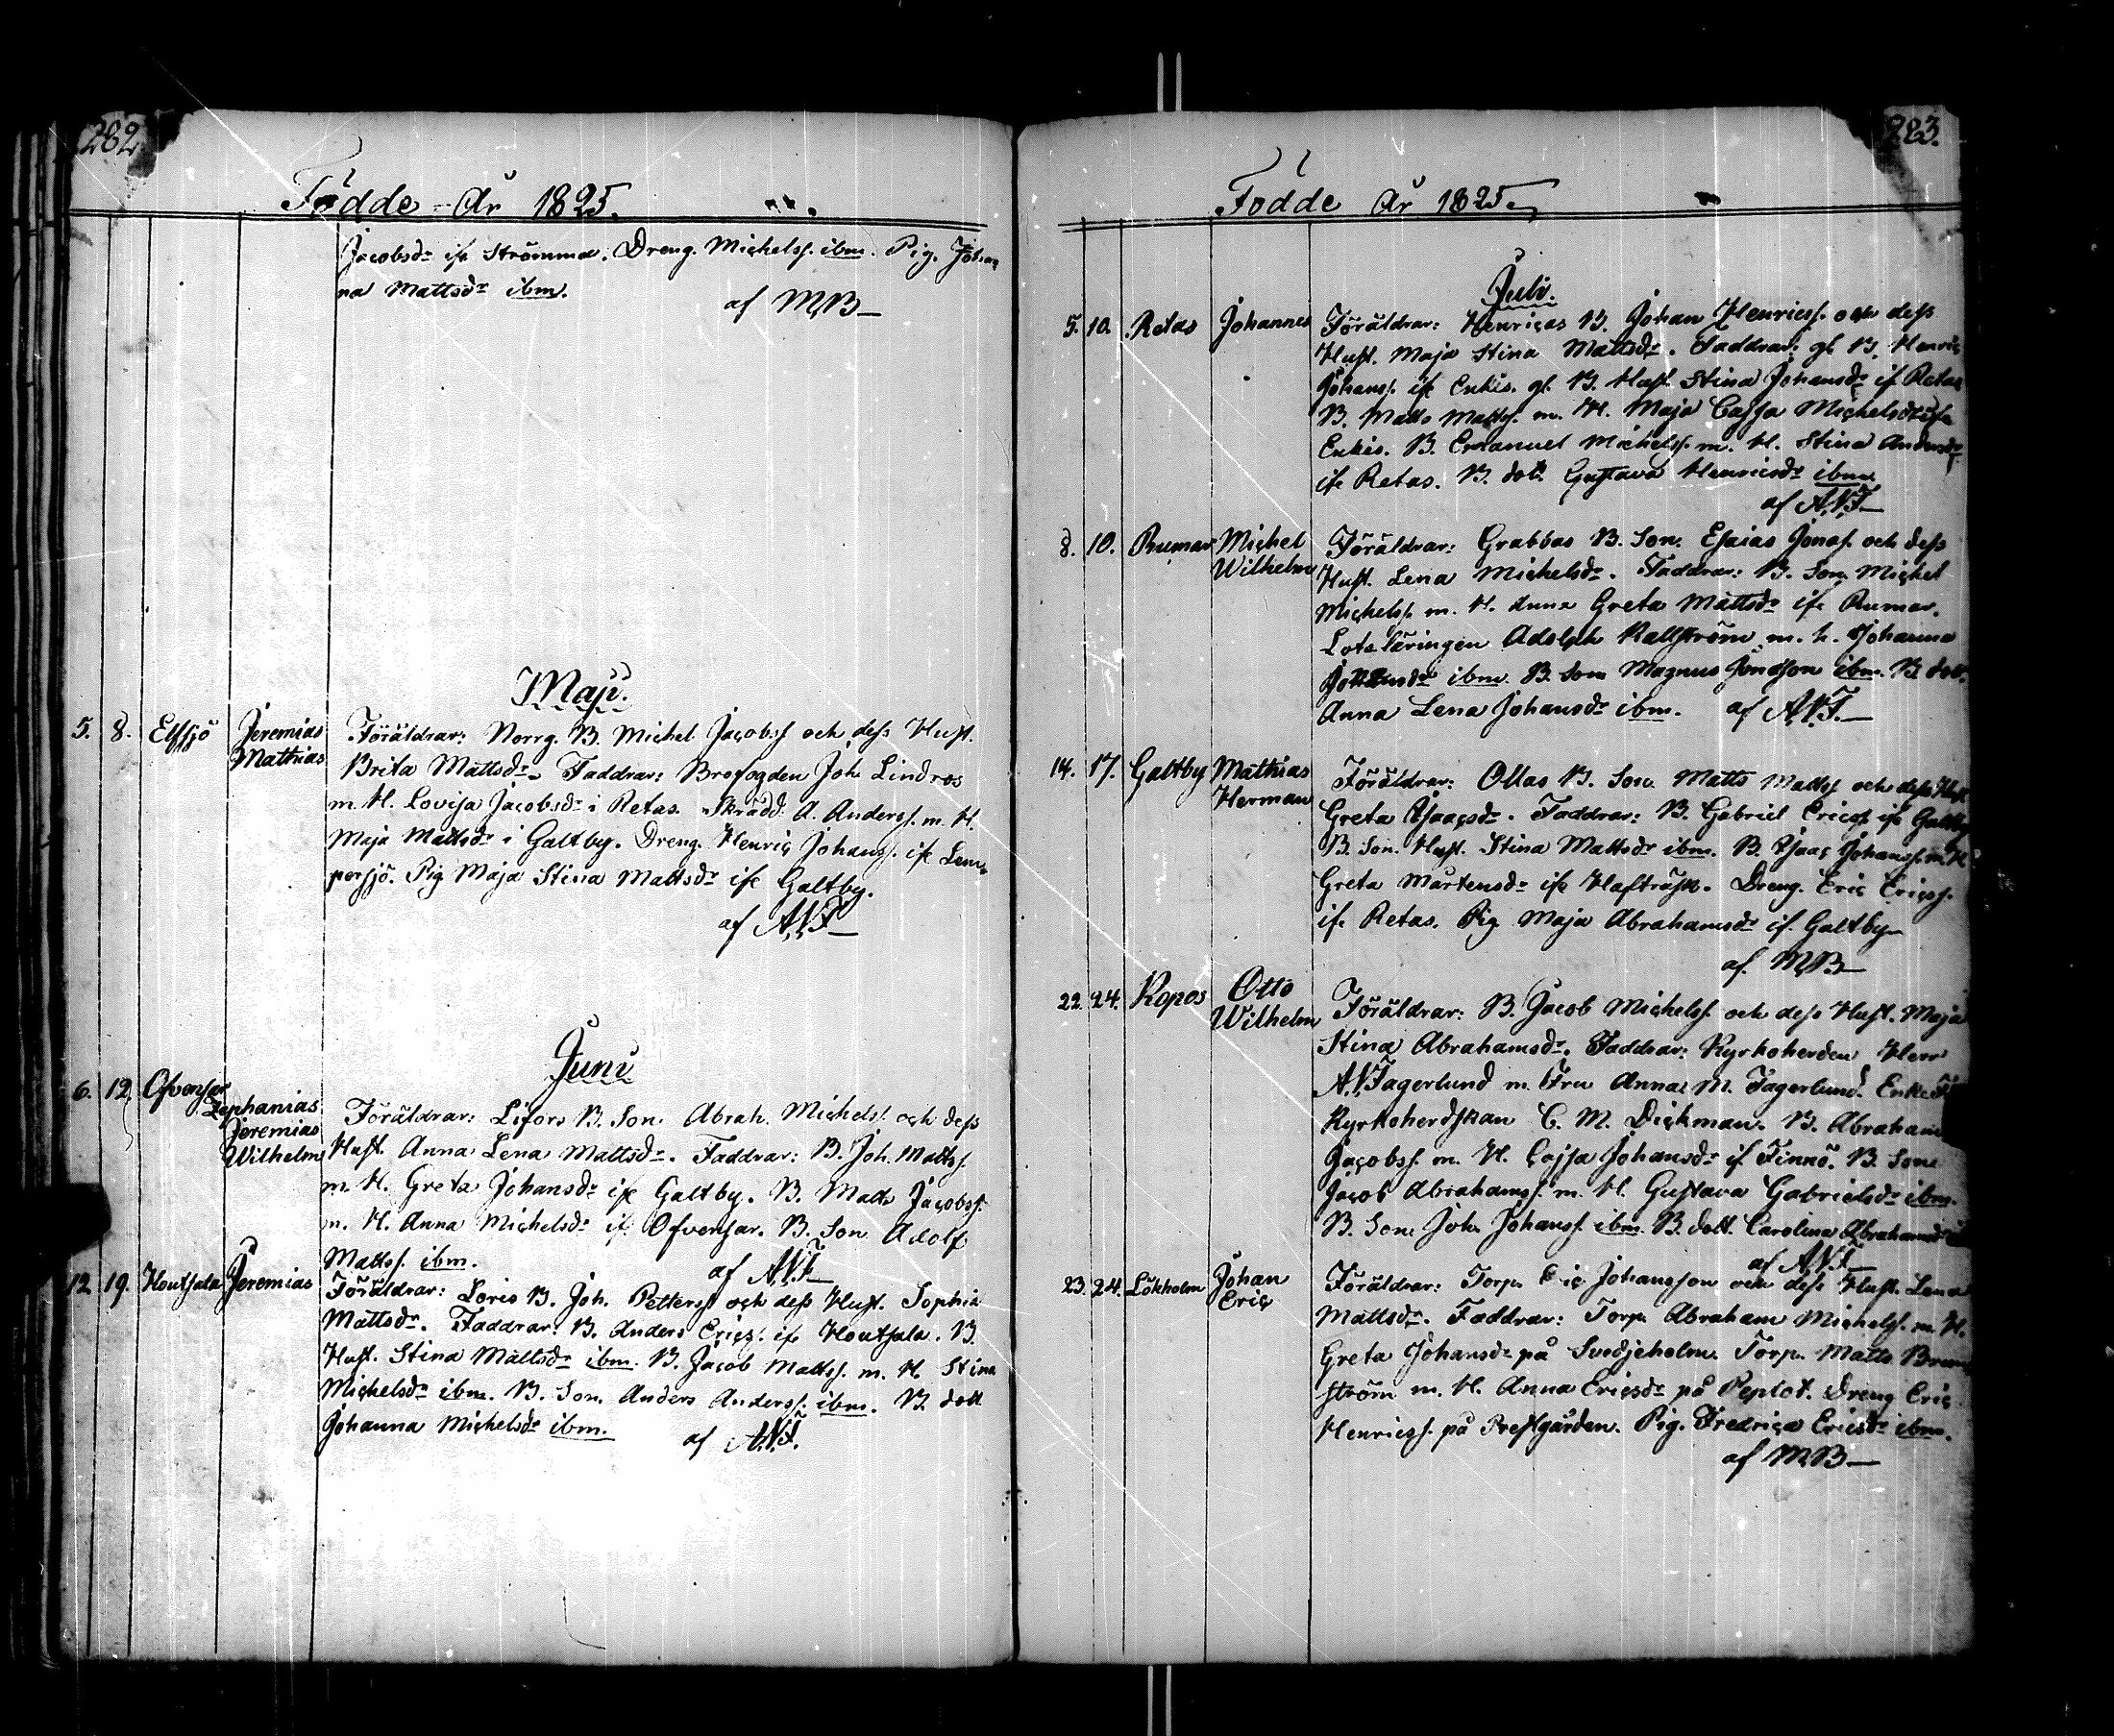 282.
Födde År 1825.
Jacobsdr ifr Strömma. Dreng. Michelss. ibm. Pig. Johan
na Mattsdr ibm.
af MB
Maji.
5. 8. Elfsjö Jeremias Mathias
Föräldrar: Norrg. B. Michel Jacobss och dess Hust.
Brita Mattsdr. Faddrar: Brofogden Joh. Lindros
m. H. Lovisa Jacobsdr i Retas. Skrädd. A. Anderss. m. H.
Maja Mattsdr i Galtby. Dreng. Henric Johanss. ifr Lem
persjö. Pig Maja Stina Mattsdr ifr Galtby.
af A.N.F.
Juni
6. 12. Ofvensor Zephanias Jeremias Wilhelm
Föräldrar: Lifors B. Son Abrah. Michelss. och dess
Hust. Anna Lena Mattsdr. Faddrar: B. Joh. Matss.
m. H. Greta Johansdr ifr Galtby. B. Matts Jacobss.
m. H. Anna Michelsdr ifr Ofvensar. B. Son Adolf
Mattss. ibm.
af A.N.F.
12. 19. Houtsala Jeremias
Föräldrar: Loris B. Joh. Petterss och dess Hust. Sophia
Mattsdr. Faddrar: B. Anders Ericss. ifr Houtsala. B.
Hust. Stina Mattsdr ibm. B. Jacob Mattss. m. H. Stina
Michelsdr ibm. B. Son. Anders Anderss. ibm. B. dott
Johanna Michelsdr ibm.
af A.N.F.
283.
Födde År 1825.
Juli.
5. 10. Retas Johannes
Föräldrar: Henricas B. Johan Henricss. och dess
Hust. Maja Stina Mattsdr. Faddrar: gl. B. Henric
Johanss. ifr Enkis. gl. B. Hust. Stina Johansdr ifr Retas
B. Matts Mattss. m. H. Maja Cajsa Michelsdr ifr
Enkis. B. Emanuel Michelss. m. H. Stina Andersdr
ifr Retas. B. dott. Gustava Henricsdr ibm.
af A.N.F.
8. 10. Rumar Michel Wilhelm
Föräldrar: Grabbas B. Son. Esaias Jonass. och dess
Hust. Lena Michelsdr. Faddrar: B. Son. Michel
Michelss. m. H. Anna Greta Mattsdr ifr Rumar.
Lotsläringen Adolph Kallström m. h. Johanna
ibm. B. Son Magnus ibm. B. dott.
Anna Lena Johansdr ibm. af A.N.F.
14. 17. Galtby Mathias Herman
Föräldrar: Ollas B. Son. Matts Mattss. och dess Hust
Greta Isaacsdr. Faddrar: B. Gabriel Ericss. ifr Galtby
B. Son. Hust. Stina Mattsdr ibm. B. Isaac Johanss. m. H
Greta Mårtensdr ifr Hafträsk. Dreng. Eric Ericss.
ifr Retas. Pig Maja Abrahamsdr ifr Galtby
af. MB
22. 24. Kopos Otto Wilhelm
Föräldrar: B. Jacob Michelss. och dess Hust. Maja
Stina Abrahamsdr. Faddrar: Kyrkoherden Herr
A.N.Fagerlund m. Fru Anna M. Fagerlund. Enke
Kyrkoherdskan C. M. Dickman. B. Abraham
Jacobss. m. H. Cajsa Johansdr if. Finnö. B. Son
Jacob Abrahamss. m. H. Gustava Gabrielsdr ibm.
B. Son Joh. Johanss. ibm. B. dott. Carolina Abrahamsdr
af A.N.F.
23. 24. Lökholm Johan Eric
Föräldrar: Torp. Eric Johansson och dess Hust. Lena
Mattsdr. Faddrar: Torp. Abraham Michelss. m. H.
Greta Johansdr på Svedjeholm. Torp. Matts Brun
ström m. H. Anna Ericsdr på Peplot. Dreng Eric
Henricss. på Prestgården. Pig. Fredrica Ericsdr ibm.
af MB